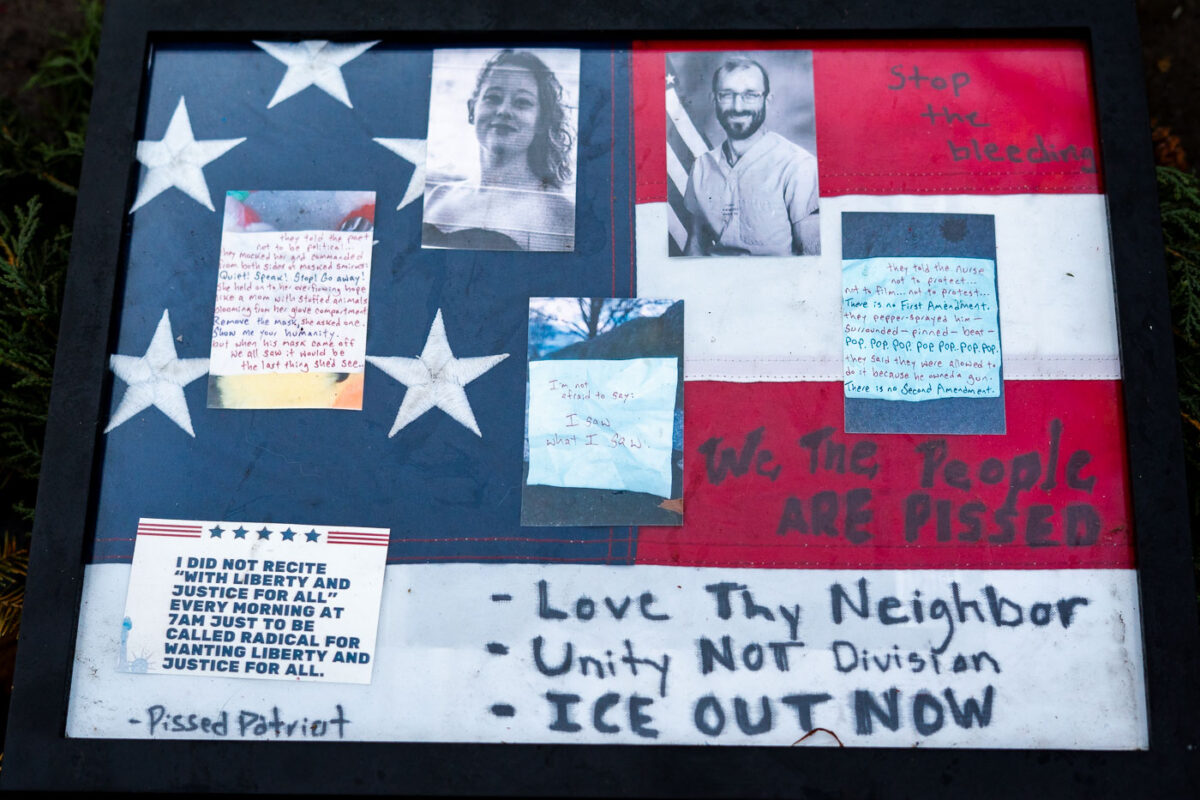 Stop
the
bleeding
they told the poet
not to be political...
they masked her and commanded
from both sides of masked smirks:
Quiet! Speak! Stop! Go away!
She held on to her overflowing hope
like a mom with stuffed animals
blooming from her glove compartment
Remove the mask, she asked one.
Show me your humanity.
but when his mask came off
we all saw it would be
the last thing she'd see..
they told the nurse
not to protect...
not to film... not to protest...
There is no First Amendment.
they pepper-sprayed him —
surrounded — pinned — beat —
Pop. pop. pop. pop. pop. pop. pop.
they said they were allowed to
do it because he owned a gun.
There is no Second Amendment.
I'm not
afraid to say:
I saw
what I saw.
We The People
ARE PISSED
I DID NOT RECITE
"WITH LIBERTY AND
JUSTICE FOR ALL"
EVERY MORNING AT
7AM JUST TO BE
CALLED RADICAL FOR
WANTING LIBERTY AND
JUSTICE FOR ALL.
- Love Thy Neighbor
- Unity NOT Division
- ICE OUT NOW
- Pissed Patriot